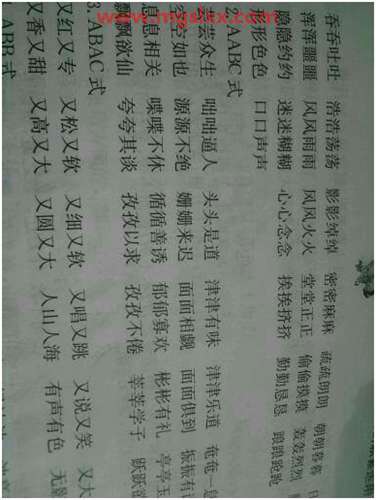 www.mgslxx.com
吞吞吐吐 浩浩荡荡 影影绰绰 密密麻麻 疏疏朗朗 朝朝暮暮
浑浑噩噩 风风雨雨 风风火火 堂堂正正 偷偷摸摸 轰轰烈烈
隐隐约约 迷迷糊糊 心心念念 挨挨挤挤 勤勤恳恳
形形色色 口口声声
2. AABC 式
芸芸众生 咄咄逼人 头头是道 津津有味 津津乐道 奄奄一
空空如也 源源不绝 姗姗来迟 面面相觑 面面俱到 振振有
息息相关 喋喋不休 循循善诱 郁郁寡欢 彬彬有礼 亭亭玉
飘飘欲仙 夸夸其谈 孜孜以求 孜孜不倦 莘莘学子 跃跃欲
3. ABAC 式
又红又专 又松又软 又细又软 又唱又跳 又说又笑 又大
又香又甜 又高又大 又圆又大 人山人海 有声有色 无
ABB 式